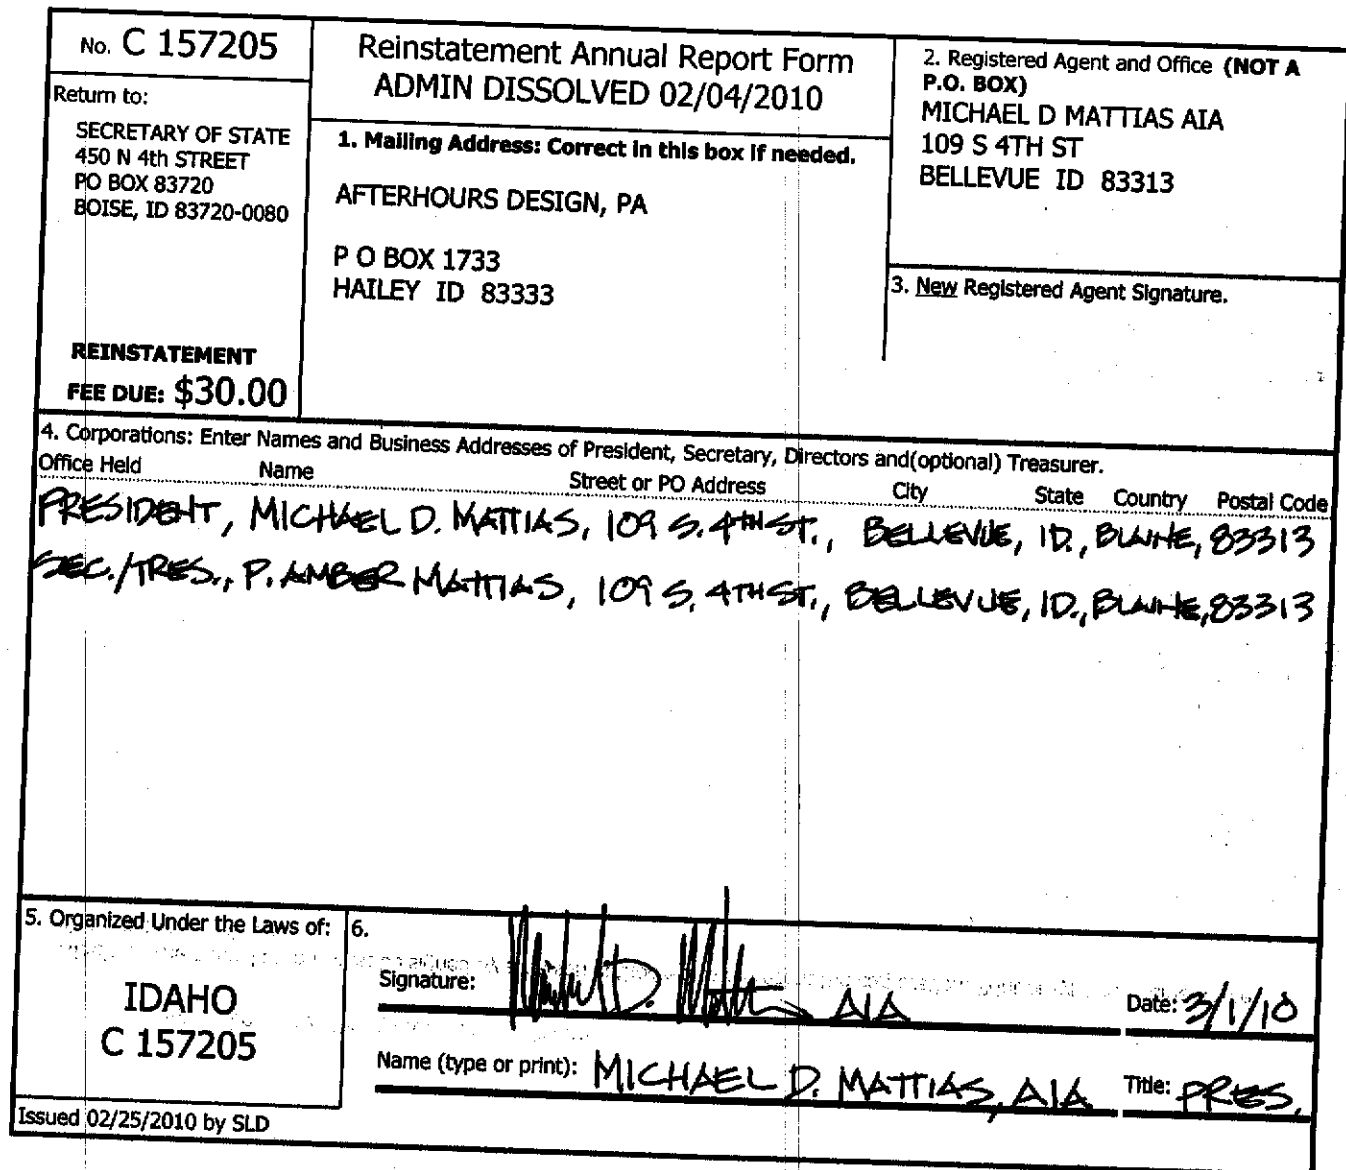 No. C 157205
Return to:
SECRETARY OF STATE
450 N 4th STREET
PO BOX 83720
BOISE, ID 83720-0080
REINSTATEMENT
FEE DUE: $30.00
Reinstatement Annual Report Form
ADMIN DISSOLVED 02/04/2010
1. Mailing Address: Correct in this box if needed.
AFTERHOURS DESIGN, PA
P O BOX 1733
HAILEY ID 83333
2. Registered Agent and Office (NOT A
P.O. BOX)
MICHAEL D MATTIAS AIA
109 S 4TH ST
BELLEVUE ID 83313
3. New Registered Agent Signature.
4. Corporations: Enter Names and Business Addresses of President, Secretary, Directors and(optional) Treasurer.
Office Held Name Street or PO Address City State Country Postal Code
PRESIDENT, MICHAEL D. MATTIAS, 109 S. 4TH ST., BELLEVUE, ID., BLAINE, 83313
SEC./TRES., P. AMBER MATTIAS, 109 S. 4TH ST., BELLEVUE, ID., BLAINE, 83313
5. Organized Under the Laws of:
IDAHO
C 157205
Issued 02/25/2010 by SLD
6.
Signature: Michael D. Mattias AIA Date: 3/1/10
Name (type or print): MICHAEL D. MATTIAS, AIA Title: PRES.